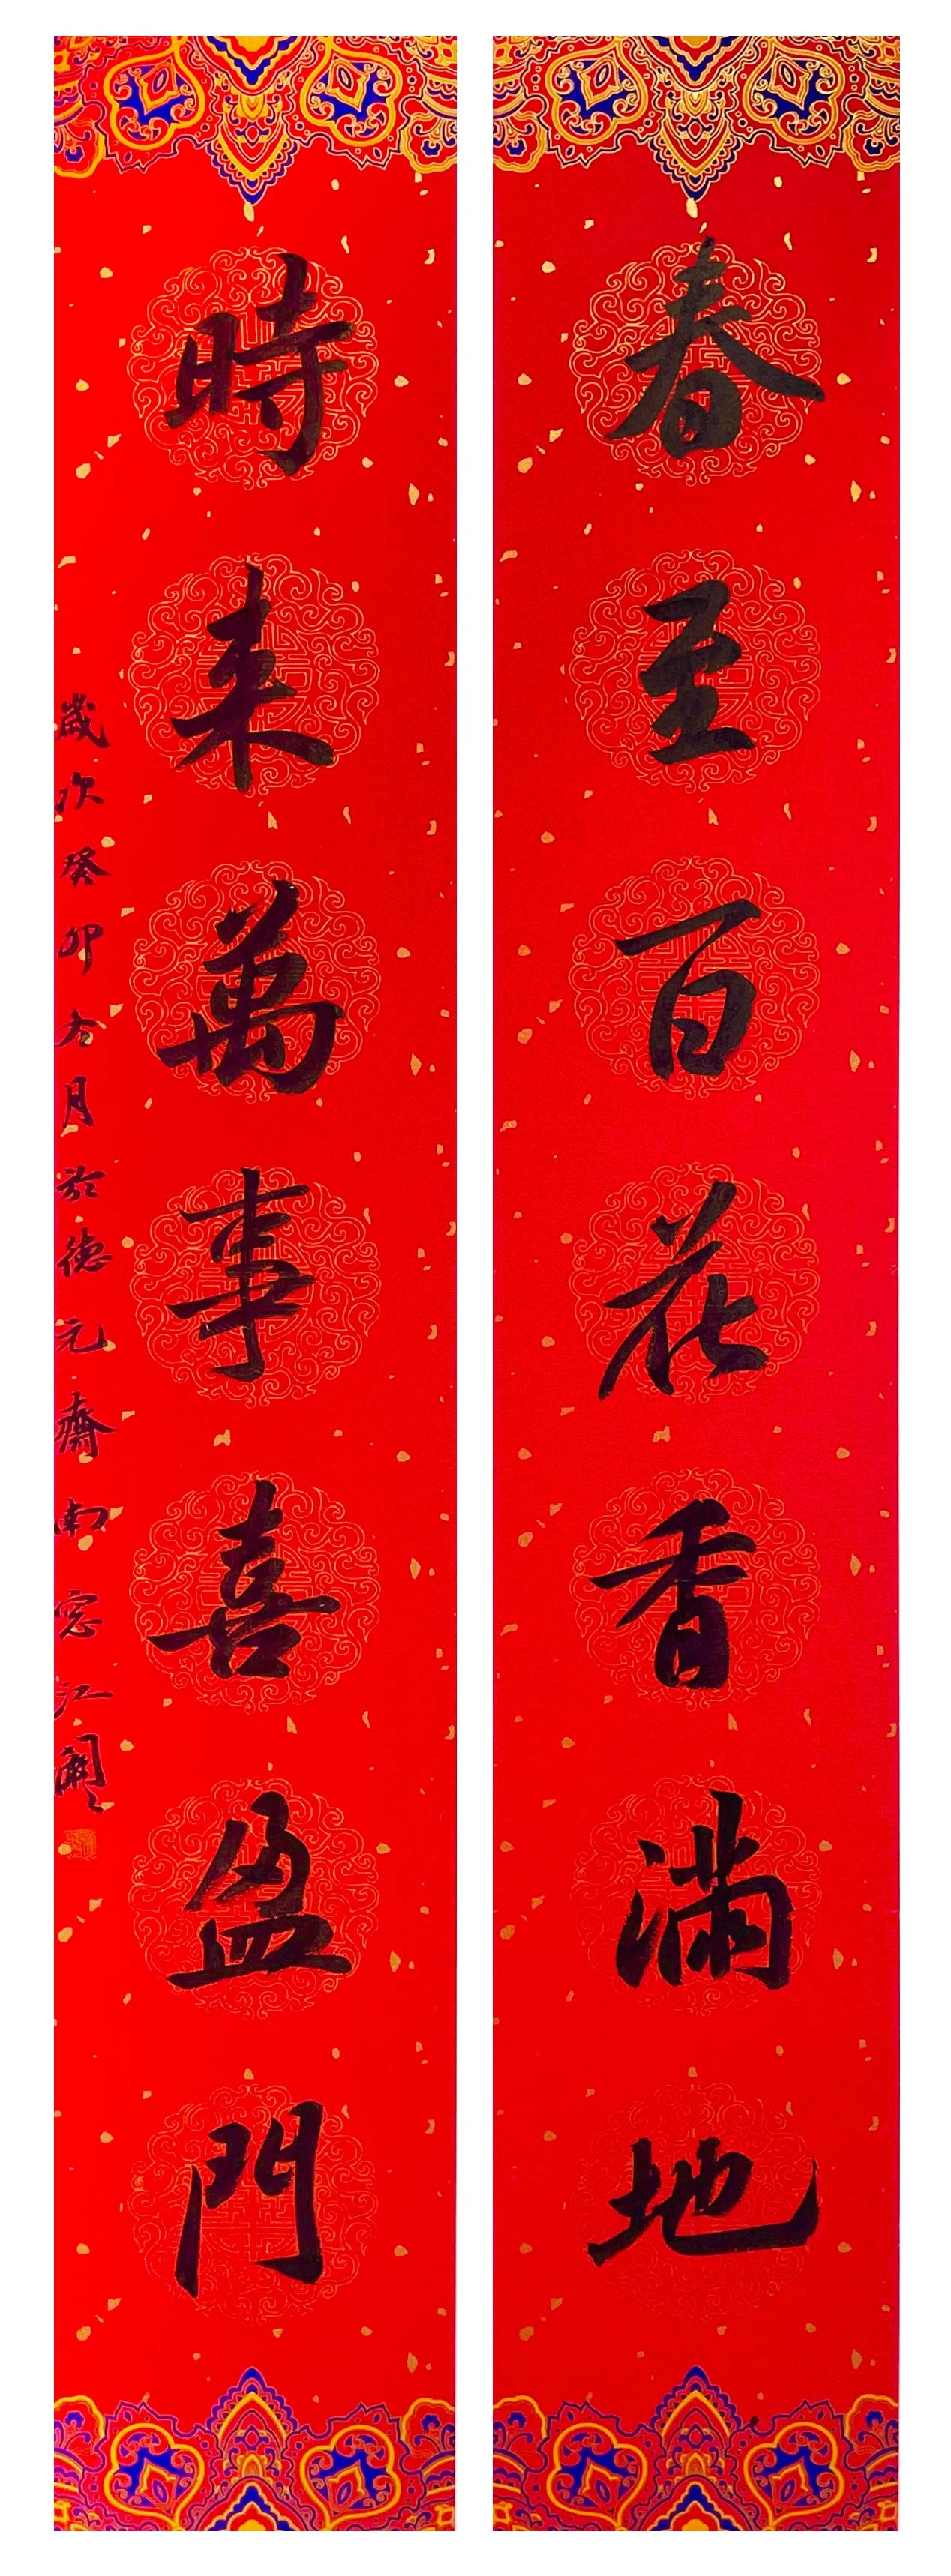 春至百花香滿地
時来萬事喜盈門
歲次癸卯六月於德元齋南窓江瀾